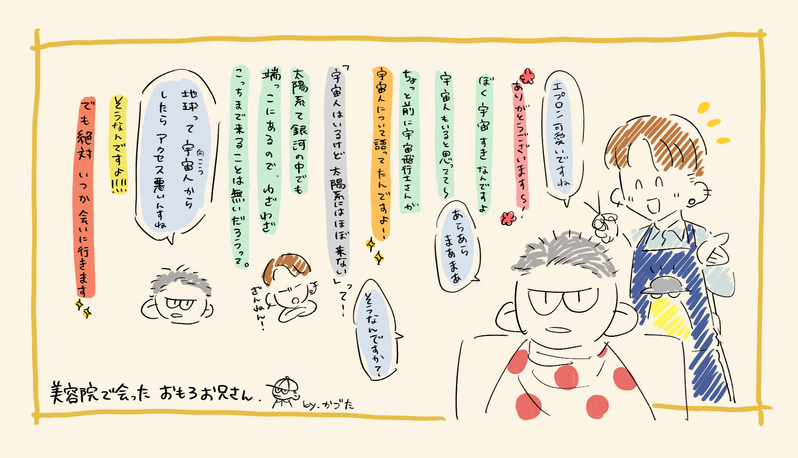 エプロン可愛いですね
ありがとうございます〜!
ぼく宇宙すきなんですよ
宇宙人もいると思ってて〜
あらあら
まあまあ
ちょっと前に宇宙飛行士さんが
宇宙人について語ってたんですよ〜
そうなんですか?
「宇宙人はいるけど 太陽系にはほぼ来ない」って〜!
太陽系て銀河の中でも
端っこにあるので、わざわざ
こっちまで来ることは無いだろうって。
ざんねん〜!
地球って 宇宙人から
向こう
したら アクセス悪いんすね
そうなんですよ!!!!
でも絶対 いつか会いに行きます
美容院で会った おもろお兄さん.
by.かづた